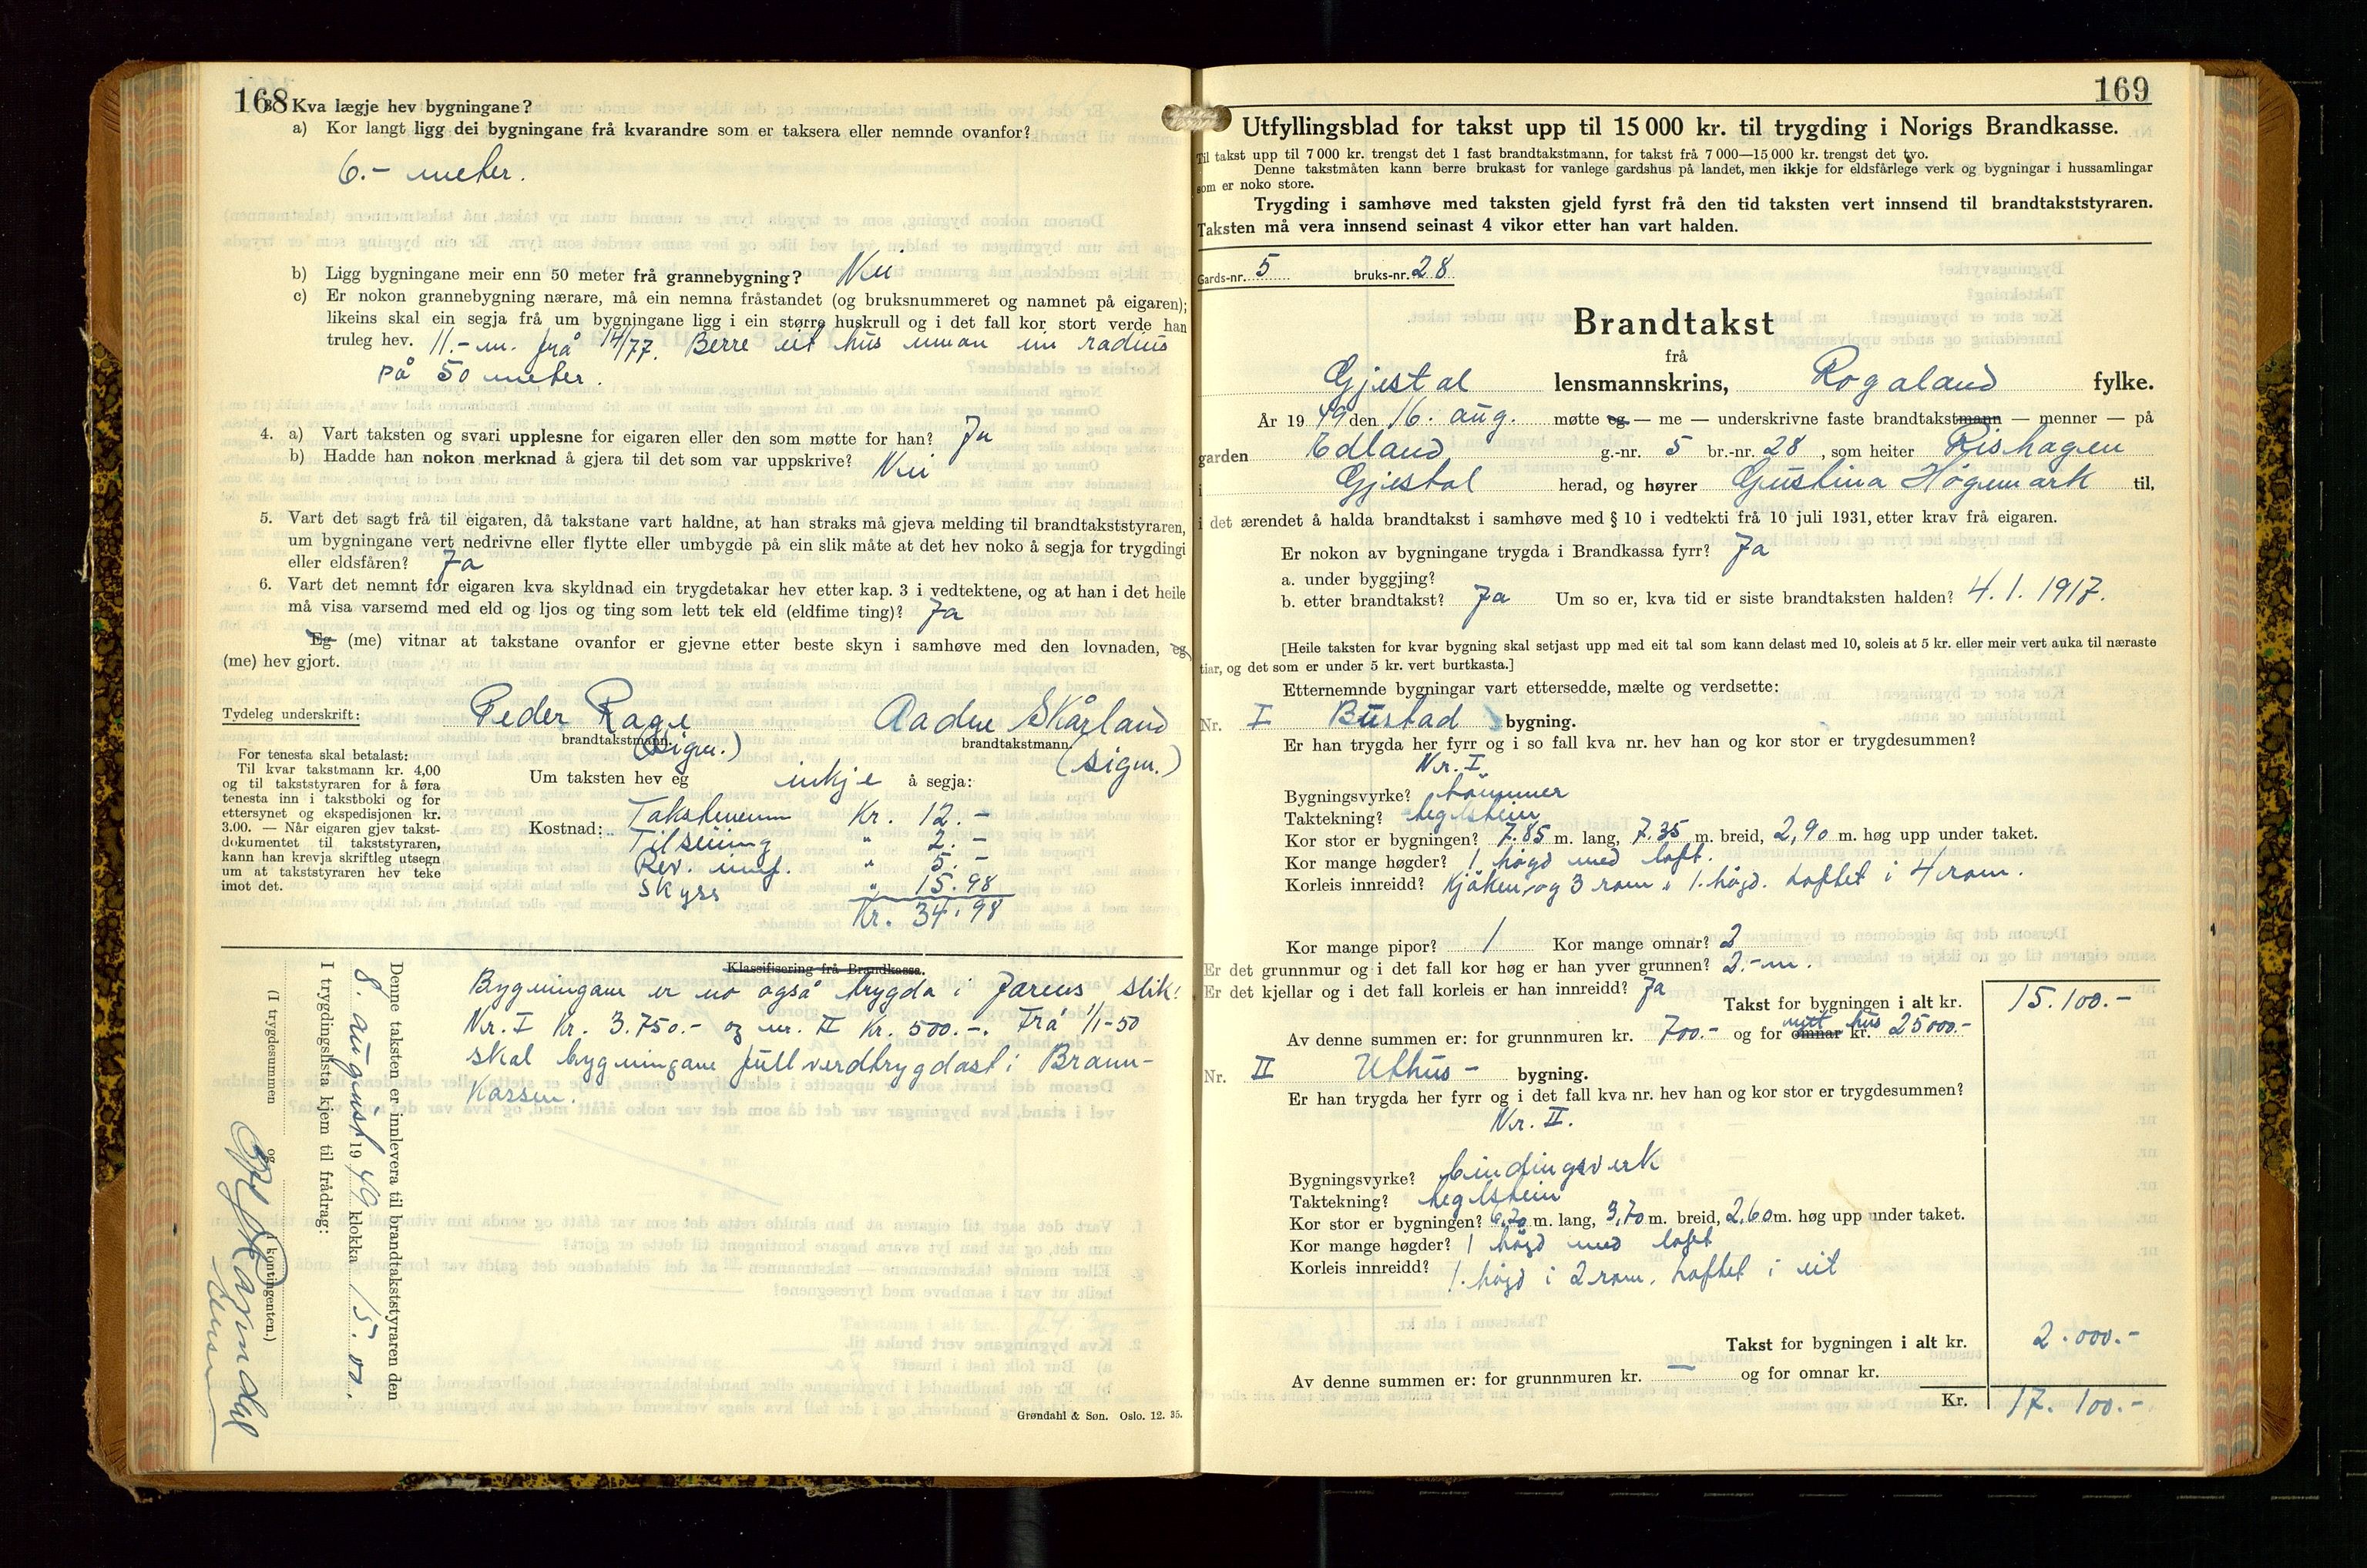 168
3. Kva lægje hev bygningane?
a) Kor langt ligg dei bygningane frå kvarandre som er taksera eller nemnde ovanfor?
6.- meter.
b) Ligg bygningane meir enn 50 meter frå grannebygning? Nei
c) Er nokon grannebygning nærare, må ein nemna fråstandet (og bruksnummeret og namnet på eigaren);
likeins skal ein segja frå um bygningane ligg i ein større huskrull og i det fall kor stort verde han
truleg hev. 11.- m. frå 14/77. Berre eit hus innan ein radius
på 50 meter.
4. a) Vart taksten og svari upplesne for eigaren eller den som møtte for han? Ja
b) Hadde han nokon merknad å gjera til det som var uppskrive? Nei
5. Vart det sagt frå til eigaren, då takstane vart haldne, at han straks må gjeva melding til brandtakststyraren,
um bygningane vert nedrivne eller flytte eller umbygde på ein slik måte at det hev noko å segja for trygdingi
eller eldsfåren? Ja
6. Vart det nemnt for eigaren kva skyldnad ein trygdetakar hev etter kap. 3 i vedtektene, og at han i det heile
må visa varsemd med eld og ljos og ting som lett tek eld (eldfime ting)? Ja
Eg (me) vitnar at takstane ovanfor er gjevne etter beste skyn i samhøve med den lovnaden, eg
(me) hev gjort.
Tydeleg underskrift: Peder Rage Aadne Skårland
brandtakstmann. (sign.) brandtakstmann (sign.)
For tenesta skal betalast:
Til kvar takstmann kr. 4,00
og til takststyraren for å føra
tenesta inn i takstboki og for
ettersynet og ekspedisjonen kr.
3.00. — Når eigaren gjev takst-
dokumentet til takststyraren,
kann han krevja skriftleg utsegn
um at takststyraren hev teke
imot det.
Um taksten hev eg inkje å segja:
Kostnad: Takstmenn Kr. 12.-
Tilsuing " 2.-
Rev. innf. " 5.-
Skyss " 15.98
Kr. 34.98
Klassifisering frå Brandkassa.
Bygningane er no også trygda i Jærens slik:
Nr. I Kr. 3.750.- og nr. II Kr. 500.-. Frå 1/1-50
skal bygningane fullverdtrygdast i Brann-
kassen.
Denne taksten er innlevera til brandtakststyraren den
8. august 1949 klokka 15.00.
I trygdingslista kjem til frådrag:
(I trygdesummen og i kontingenten.)
Grøndahl & Søn. Oslo. 12. 35.
169
Utfyllingsblad for takst upp til 15 000 kr. til trygding i Norigs Brandkasse.
Til takst upp til 7 000 kr. trengst det 1 fast brandtakstmann, for takst frå 7 000—15 000 kr. trengst det tvo.
Denne takstmåten kann berre brukast for vanlege gardshus på landet, men ikkje for eldsfårlege verk og bygningar i hussamlingar
som er noko store.
Trygding i samhøve med taksten gjeld fyrst frå den tid taksten vert innsend til brandtakststyraren.
Taksten må vera innsend seinast 4 vikor etter han vart halden.
Gards-nr. 5 bruks-nr. 28
Brandtakst
frå
Gjestal lensmannskrins, Rogaland fylke.
År 1949 den 16. aug. møtte eg — me — underskrivne faste brandtakstmann — menner — på
garden Edland g.-nr. 5 br.-nr. 28, som heiter Rishagen
i Gjestal herad, og høyrer Gustina Høgemark til,
i det ærendet å halda brandtakst i samhøve med § 10 i vedtekti frå 10 juli 1931, etter krav frå eigaren.
Er nokon av bygningane trygda i Brandkassa fyrr? Ja
a. under byggjing?
b. etter brandtakst? Ja Um so er, kva tid er siste brandtaksten halden? 4.1.1917.
[Heile taksten for kvar bygning skal setjast upp med eit tal som kann delast med 10, soleis at 5 kr. eller meir vert auka til næraste
tiar, og det som er under 5 kr. vert burtkasta.]
Etternemnde bygningar vart ettersedde, mælte og verdsette:
Nr. I Bustad bygning.
Er han trygda her fyrr og i so fall kva nr. hev han og kor stor er trygdesummen?
Nr. I.
Bygningsvyrke? tømmer
Taktekning? teglstein
Kor stor er bygningen? 7.85 m. lang, 7.35 m. breid, 2,90 m. høg upp under taket.
Kor mange høgder? 1 høgd med loft.
Korleis innreidd? Kjøken og 3 rom i 1. høgd. Loftet i 4 rom.
Kor mange pipor? 1 Kor mange omnar? 2
Er det grunnmur og i det fall kor høg er han yver grunnen? 2.- m.
Er det kjellar og i det fall korleis er han innreidd? Ja
Takst for bygningen i alt kr. 15.100.-
Av denne summen er: for grunnmuren kr. 700.- og for omnar nytt hus kr. 25000.-
Nr. II Uthus- bygning.
Er han trygda her fyrr og i det fall kva nr. hev han og kor stor er trygdesummen?
Nr. II.
Bygningsvyrke? bindingsverk
Taktekning? teglstein
Kor stor er bygningen? 6,70 m. lang, 3,70 m. breid, 2,60 m. høg upp under taket.
Kor mange høgder? 1 høgd med loft
Korleis innreidd? 1. høgd i 2 rom. Loftet i eit
Takst for bygningen i alt kr. 2.000.-
Av denne summen er: for grunnmuren kr. — og for omnar kr.
Kr. 17.100.-